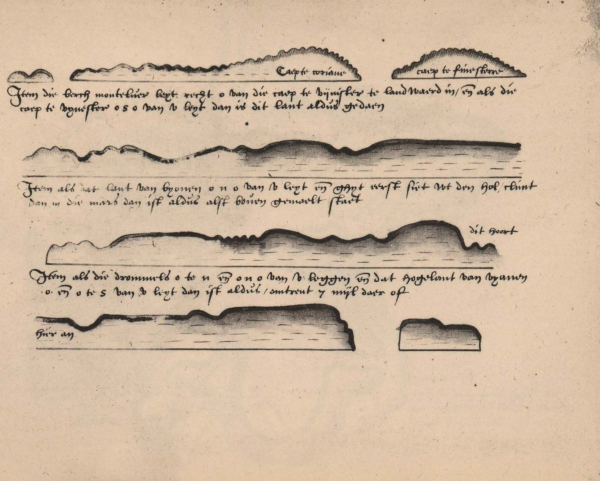 Caepe coriane
caep te finesterre
Item die berch monteluer leyt recht o van die caep te vynister te landwaerd in / en als die
caep te vynester o s o van v leyt dan is dit lant aldus gedaen
Item als dat lant van bayonen o n o van v leyt en ghyt eerst siet wt den hol,
dan in die mars dan ist aldus alst boven gemaelt staet
dit hoort
Item als die drommels o te n en o n o van v leggen en dat hogelant van
o en o te s van v leyt dan ist aldus / omtrent 7 mijl daer of
hier an